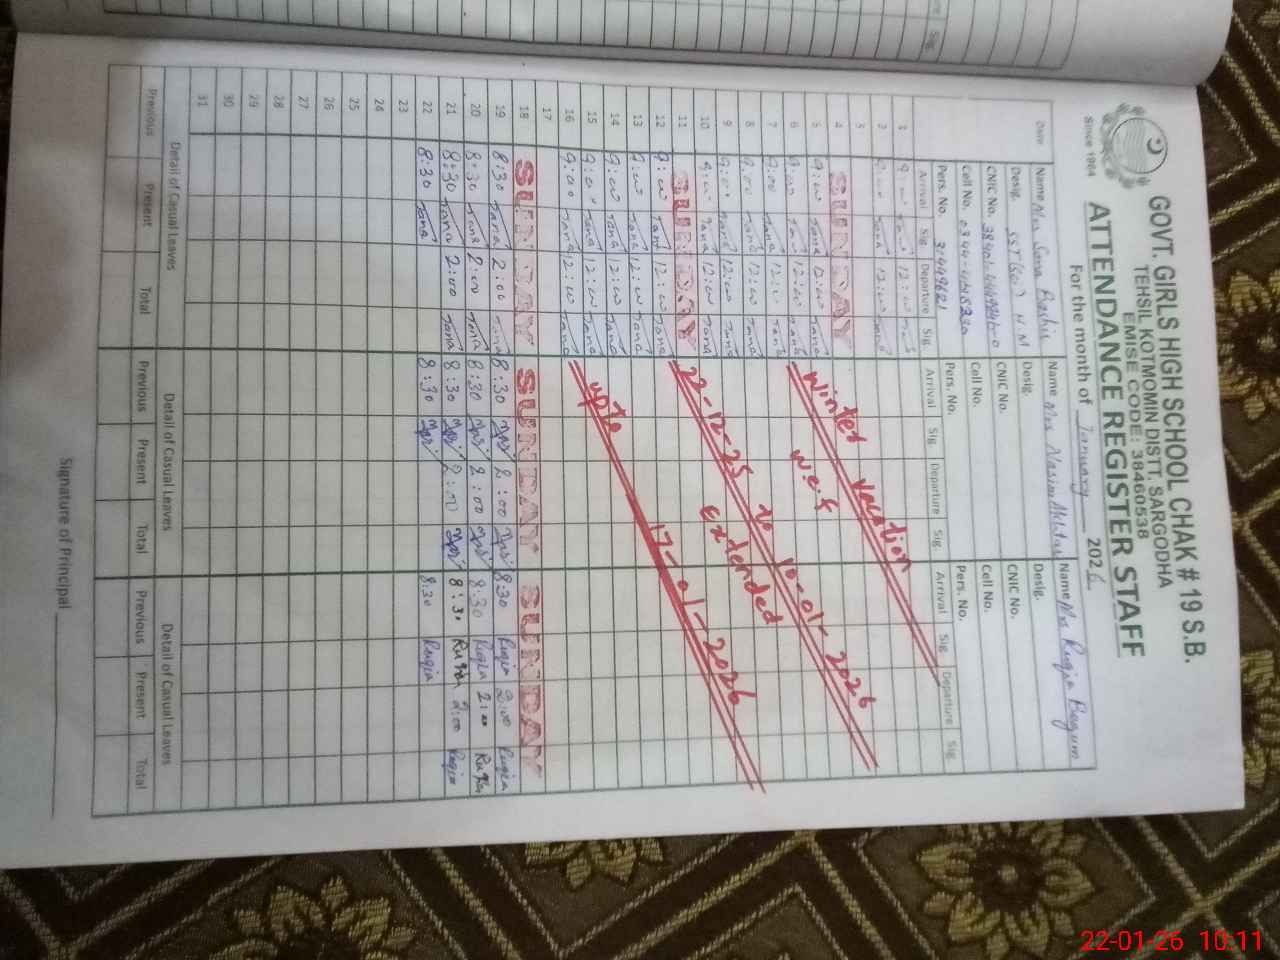 GOVT. GIRLS HIGH SCHOOL CHAK # 19 S.B.
TEHSIL KOTMOMIN DISTT. SARGODHA
EMISE CODE: 38460538
Since 1984
ATTENDANCE REGISTER STAFF
For the month of January 2026
Date
Name Mrs Sana Bashir
Name Mrs Nasim Akhtar
Name Mrs Ruqia Begum
Desig.
Desig.
Desig.
CNIC No.
CNIC No.
CNIC No.
Cell No.
Cell No.
Cell No.
Pers. No.
Pers. No.
Pers. No.
Arrival Sig. Departure Sig. Arrival Sig. Departure Sig. Arrival Sig. Departure Sig.
1 9:00 12:00
2 9:00 12:00
3
4 SUNDAY
5 9:00 Sana 12:00 Sana
6 9:00 Sana 12:00 Sana
7 9:00 Sana 12:00 Sana
8 9:00 Sana 12:00 Sana
9 9:00 Sana 12:00 Sana
10 9:00 Sana 12:00 Sana
11 SUNDAY
12 9:00 Sana 12:00 Sana
13 9:00 Sana 12:00 Sana
14 9:00 Sana 12:00 Sana
15 9:00 Sana 12:00 Sana
16 9:00 Sana 12:00 Sana
Winter vacation
w.e.f
22-12-25 to 10-01-2026
extended
upto 17-01-2026
17
18 SUNDAY SUNDAY SUNDAY
19 8:30 Sana 2:00 Sana 8:30 2:00 8:30 Ruqia 2:00 Ruqia
20 8:30 Sana 2:00 Sana 8:30 2:00 8:30 Ruqia 2:00 Ruqia
21 8:30 Sana 2:00 Sana 8:30 2:00 8:30 Ruqia 2:00 Ruqia
22 8:30 Sana 8:30 8:30 Ruqia
23
24
25
26
27
28
29
30
31
Detail of Casual Leaves Detail of Casual Leaves Detail of Casual Leaves
Previous Present Total Previous Present Total Previous Present Total
Signature of Principal
Sig.
22-01-26 10:11